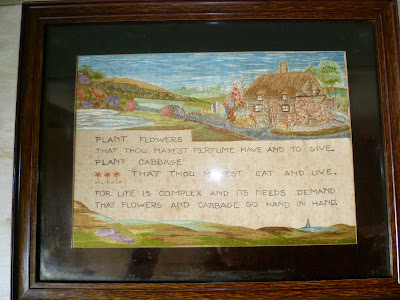 PLANT FLOWERS
THAT THOU MAYEST PERFUME HAVE AND TO GIVE.
PLANT CABBAGE
THAT THOU MAYEST EAT AND LIVE.
FOR LIFE IS COMPLEX AND ITS NEEDS DEMAND
THAT FLOWERS AND CABBAGE GO HAND IN HAND.